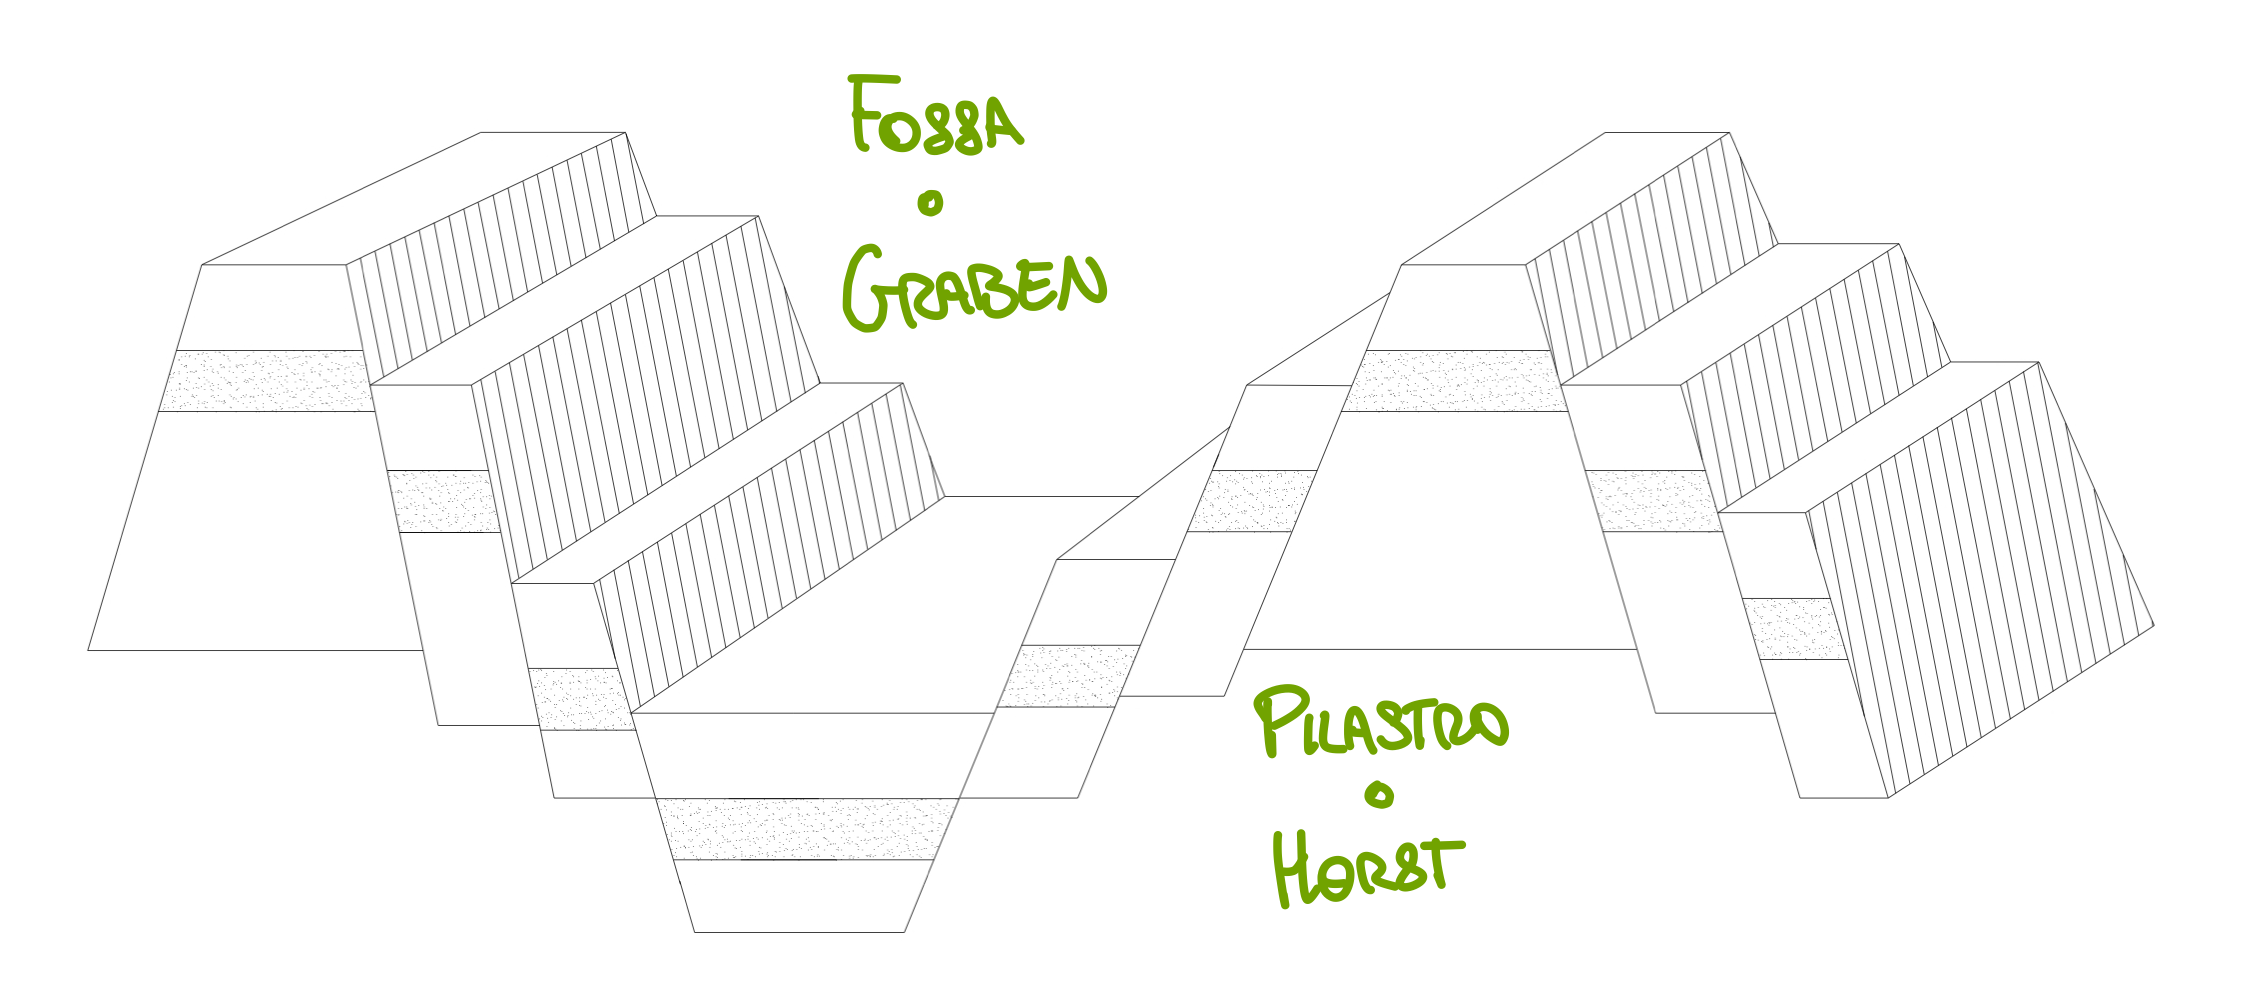 FOSSA
o
GRABEN
PILASTRO
o
HORST